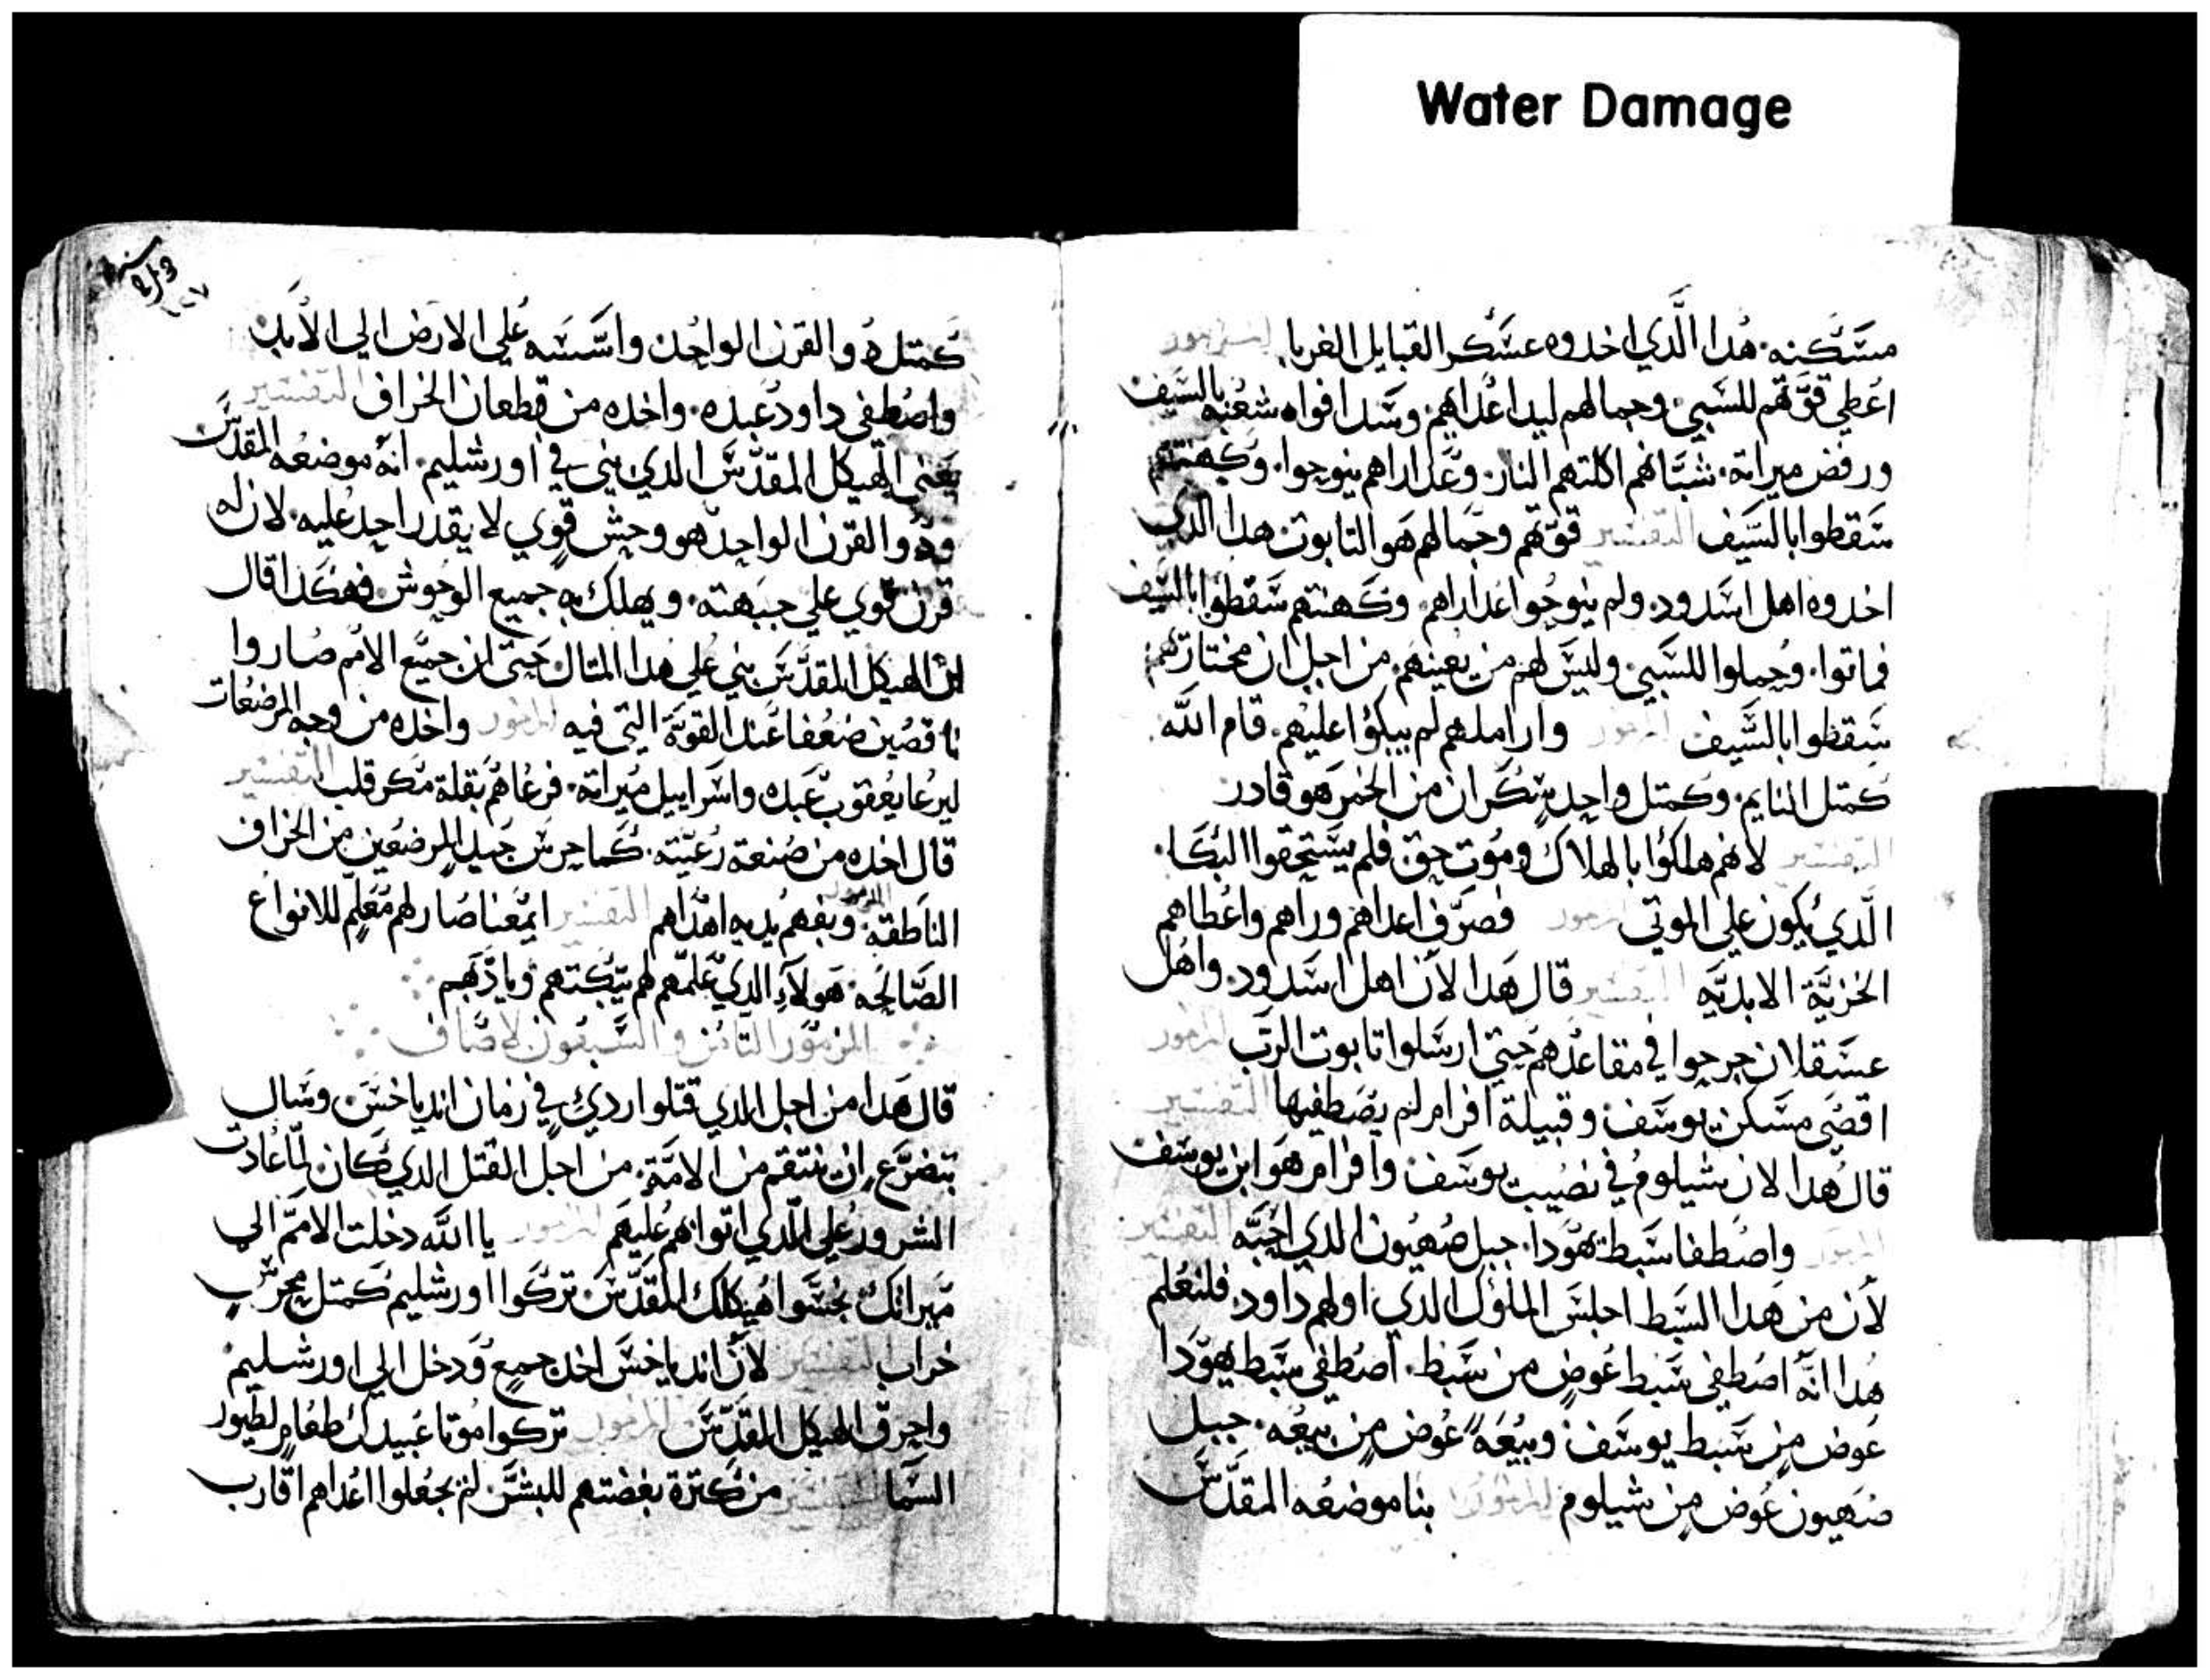 Water Damage
مسكنه. هدا الدي اخدوه عسكر القبايل الغربا. المزمور
اعطي قوتهم للسبي. وجمالهم ليد اعداهم. وسد افواه شعبه بالسيف
ورفض ميراته. شبانهم اكلتهم النار. وعداراهم ينوحوا. وكهنتهم
سقطوا بالسيف التفسير قوتهم وجمالهم هو التابوت هدا الدي
اخدوه اهل اسدود. ولم ينوحوا عداراهم. وكهنتهم سقطوا بالسيف
فماتوا. وحملوا للسبي. وليس لهم من يعينهم. من اجل ان مختارتهم
سقطوا بالسيف المزمور واراملهم لم يبكوا عليهم. قام الله
كمتل النايم. وكمتل واحد سكران من الخمر هو قادر
التفسير لانهم هلكوا بالهلاك وموت حق فلم يستحقوا البكا.
الدي يكون علي الموتي المزمور فصرف اعداهم وراهم واعطاهم
الخزية الابدية التفسير قال هدا لان اهل اسدود. واهل
عسقلان جرحوا في مقاعدهم حتي ارسلوا تابوت الرب المزمور
اقصي مسكن يوسف وقبيلة افرام لم يصطفيها التفسير
قال هدا لان شيلوم في نصيب يوسف وافرام هو ابن يوسف
المزمور واصطفا سبط يهودا. جبل صهيون الدي احبه التفسير
لان من هدا السبط اجلس الملوك الدي اولهم داود. فلنعلم
هدا انه اصطفي سبط عوض من سبط. اصطفي سبط يهودا
عوض من سبط يوسف وبيعه عوض من بيعه. جبل
صهيون عوض من شيلوم المزمور بنا موضعه المقدس
كمتل دو القرن الواحد واسسه علي الارض الي الابد
واصطفي داود عبده. واخده من قطعان الخراف التفسير
يعني الهيكل المقدس الدي بني في اورشليم. انه موضعه المقدس
ودو القرن الواحد هو وحش قوي لا يقدر احد عليه. لان له
قرن قوي علي جبهته. ويهلك به جميع الوحوش فهكدا قال
ان الهيكل المقدس بني علي هدا المتال. حتي ان جميع الامم صاروا
ناقصين ضعفا عند القوة التي فيه المزمور واخده من وجه المرضعات
ليرعا يعقوب عبده واسراييل ميراته. فرعاهم بقلة مكر قلب التفسير
قال اخده من صنعة رعيته. كما حرس جيد المرضعين من الخراف
الناطقة. المزمور وبفهم يديه اهداهم التفسير ايمعنا صار لهم معلم للانواع
الصالحه. هولاء الدي علمهم لم يتبكتهم وياديهم
المزمور التامن والسبعون لاصاف
قال هدا من اجل الدي قتلوا ردي في زمان اندياخس. وسال
بتضرع ان ينتقم من الامة. من اجل القتل الدي كان لما عادت
الشرور علي الدي اتوا بهم عليهم المزمور يا الله دخلت الامم الي
ميراتك نجسوا هيكلك المقدس تركوا اورشليم كمتل محرس
خراب التفسير لان اندياخس اخد جمع ودخل الي اورشليم
واحرق الهيكل المقدس المزمور تركوا موتا عبيدك طعام لطيور
السما التفسير من كترة بغضتهم للبشر. لم يجعلوا اعداهم اقارب